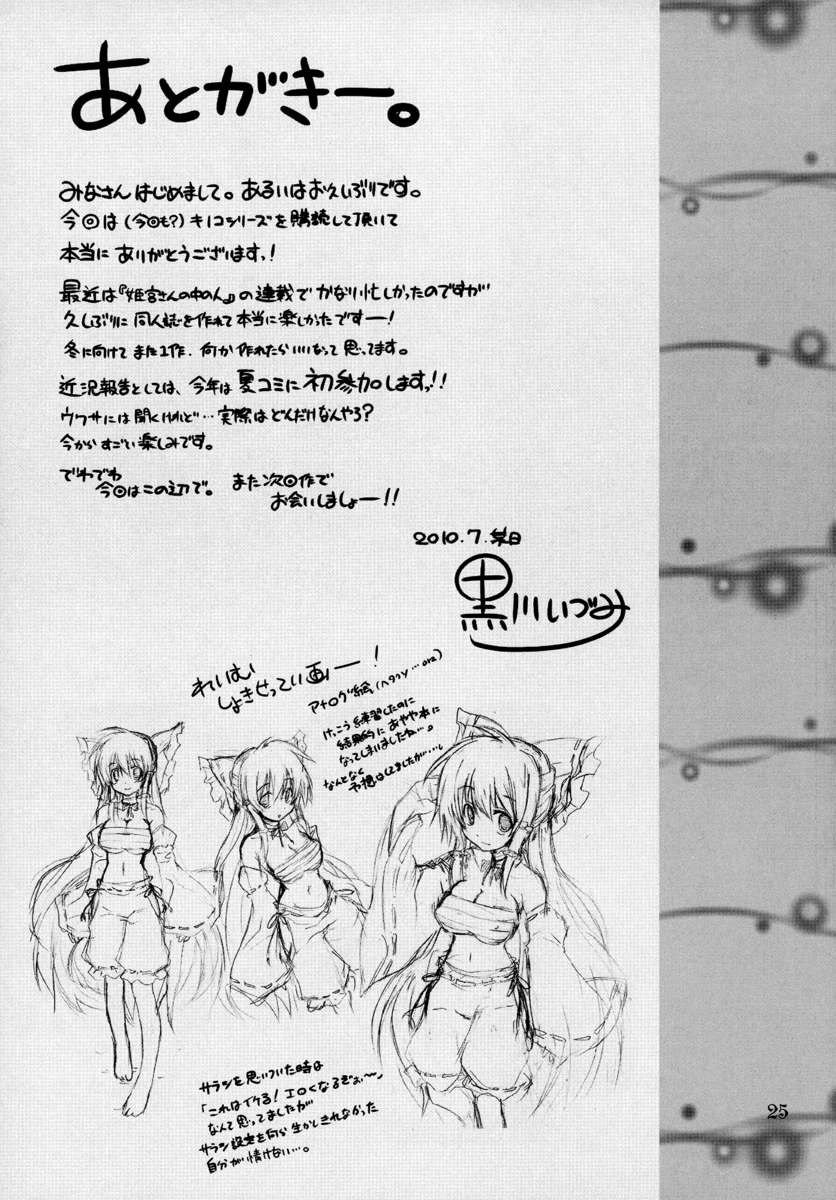 あとがきー。
みなさんはじめまして。あるいはお久しぶりです。
今回は(今回も?)キノコシリーズを購読して頂いて
本当にありがとうございますっ!
最近は『姫宮さんの中の人』の連載でかなり忙しかったのですが
久しぶりに同人誌を作れて本当に楽しかったですー!
冬に向けてまた1作、何か作れたらいいなって思ってます。
近況報告としては、今年は夏コミに初参加しますっ!!
ウワサには聞くけれど…実際はどんだけなんやろ?
今からすごい楽しみです。
でわでわ
今回はこの辺で。また次回作で
お会いしましょー!!
2010.7.某日
黒川いづみ
れいむ
しょきせってい画ー!
アナログ絵(ヘタクソ…orz)
けっこう練習したのに
結果的にあやや本に
なってしまいましたね…。
なんとなく
予想はしてましたが…。
サラシを思いついた時は
「これはイケる!エロくなるぞぉ〜」
なんて思ってましたが
サラシ設定を何ら生かしきれなかった
自分が情けない…。
25